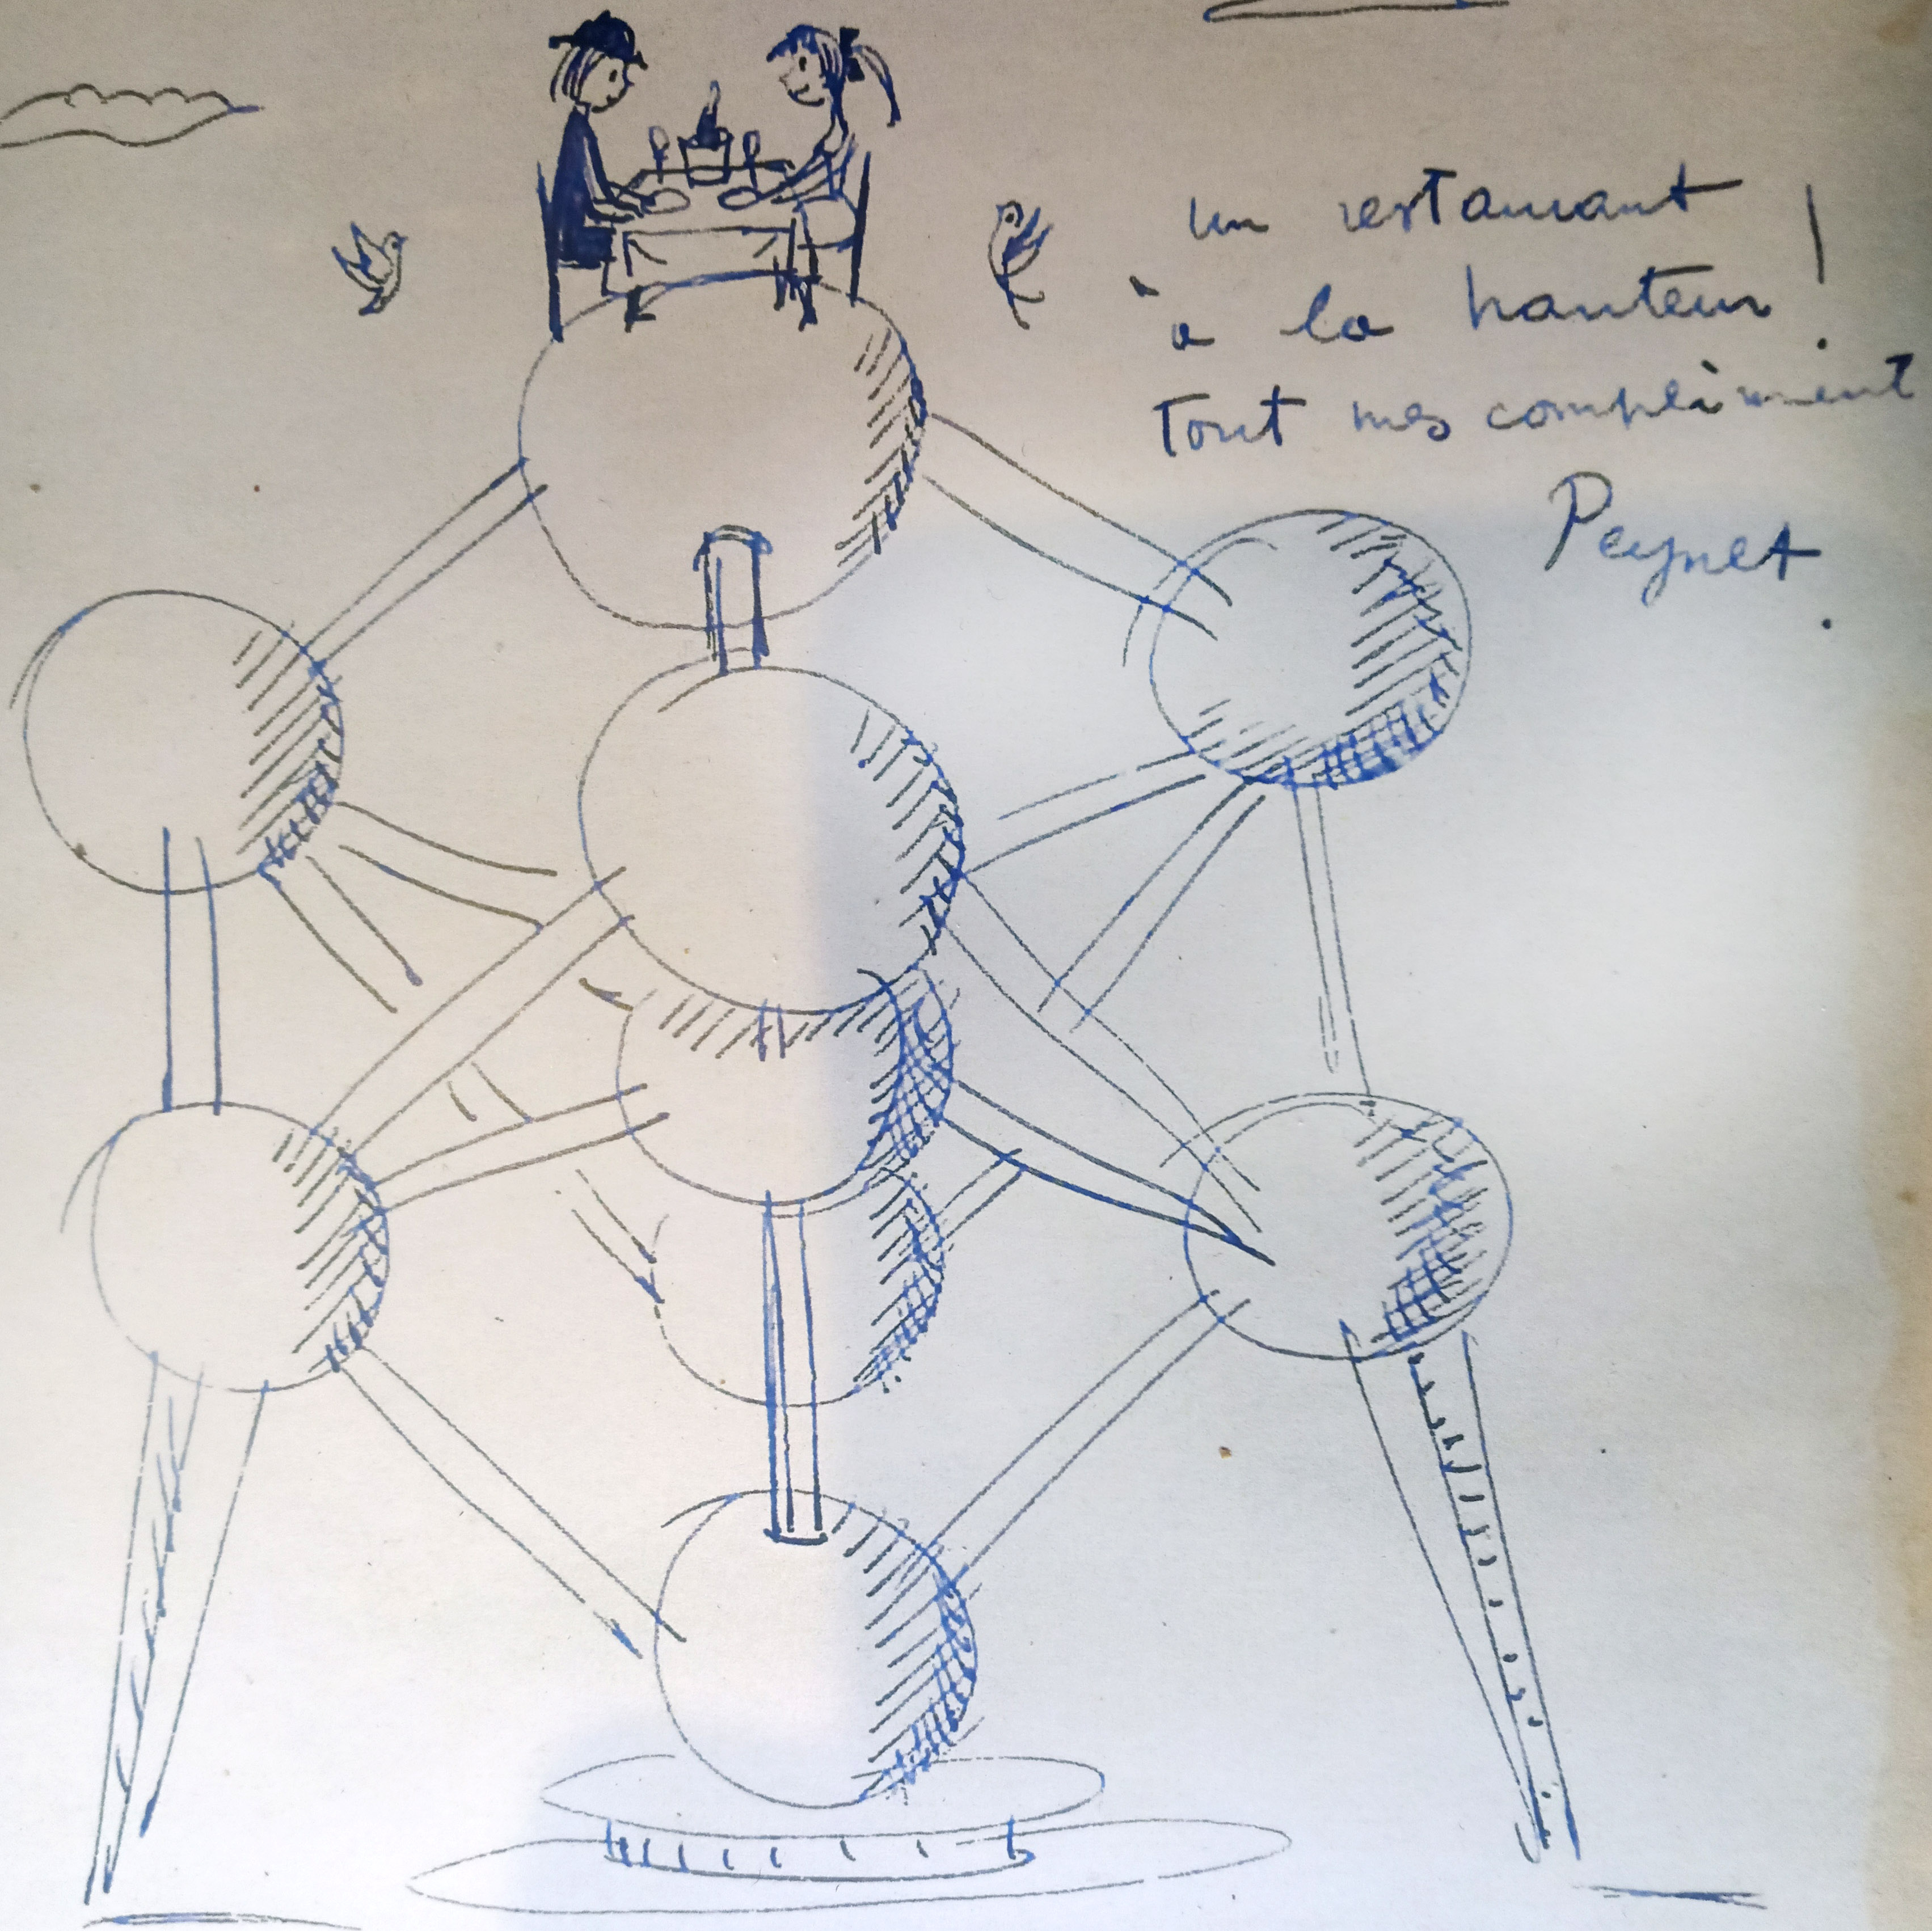 un restaurant
à la hauteur !
Tout mes compliment
Peynet.